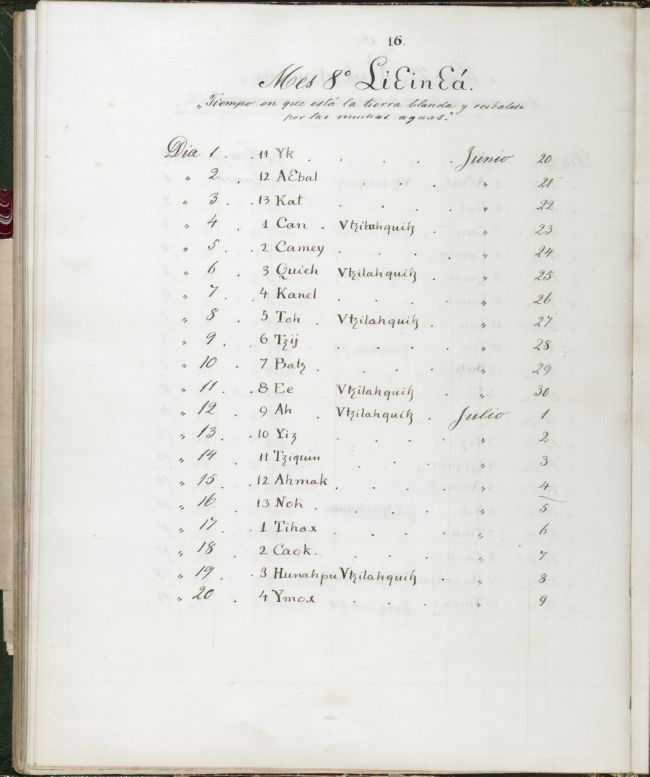 16.
Mes 8º LiƐinƐá.
"Tiempo en que está la tierra blanda y resbalosa
por las muchas aguas."
Dia 1 . 11 Yk . . . . . Junio 20
" 2 . 12 AƐbal . . . . " 21
" 3 . . 13 Kat . . . . " 22
" 4 . 1 Can . Vtꜩilahquiꜩ . " 23
" 5 . . 2 Camey . . . . " 24
" 6 . 3 Quieh Vtꜩilahquiꜩ . " 25
" 7 . . 4 Kanel . . . . " 26
" 8 . 5 Toh . Vtꜩilahquiꜩ . " 27
" 9 . 6 Tzij . . . . " 28
" 10 . 7 Batꜩ . . . . " 29
" 11 . . 8 Ee Vtꜩilahquiꜩ . " 30
" 12 . 9 Ah . Vtꜩilahquiꜩ . Julio 1
" 13 . . 10 Yiz . . . . " 2
" 14 . 11 Tziquin . . " 3
" 15 . . 12 Ahmak . . . . " 4
" 16 . 13 Noh . . . . " 5
" 17 . . 1 Tihax . . . . " 6
" 18 . 2 Caok . . . . " 7
" 19 . . 3 Hunahpu Vtꜩilahquiꜩ . " 8
" 20 . 4 Ymox . . . " 9